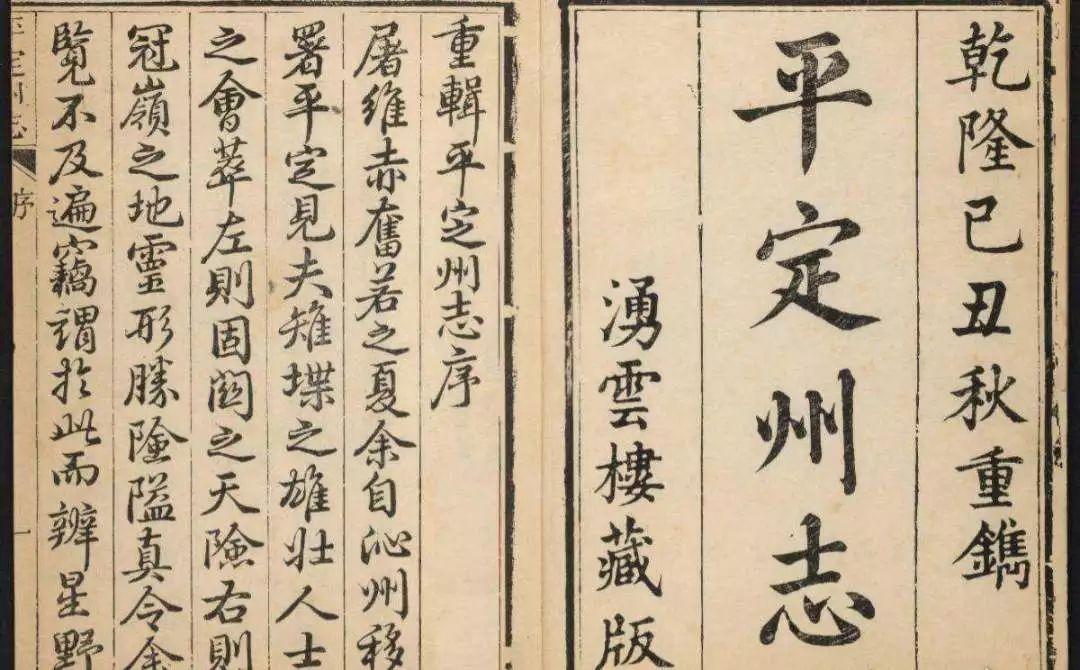 乾隆己丑秋重鐫
平定州志
湧雲樓藏版
重輯平定州志序
屠維赤奮若之夏余自沁州移
署平定見夫雉堞之雄壯人士
之會萃左則固関之天險右則
冠嶺之地靈形勝險隘真令余
覽不及遍竊謂於此而辨星野
平定州志
序
一